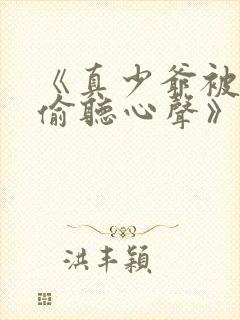 《真少爺被
偷聽心聲》
洪丰穎